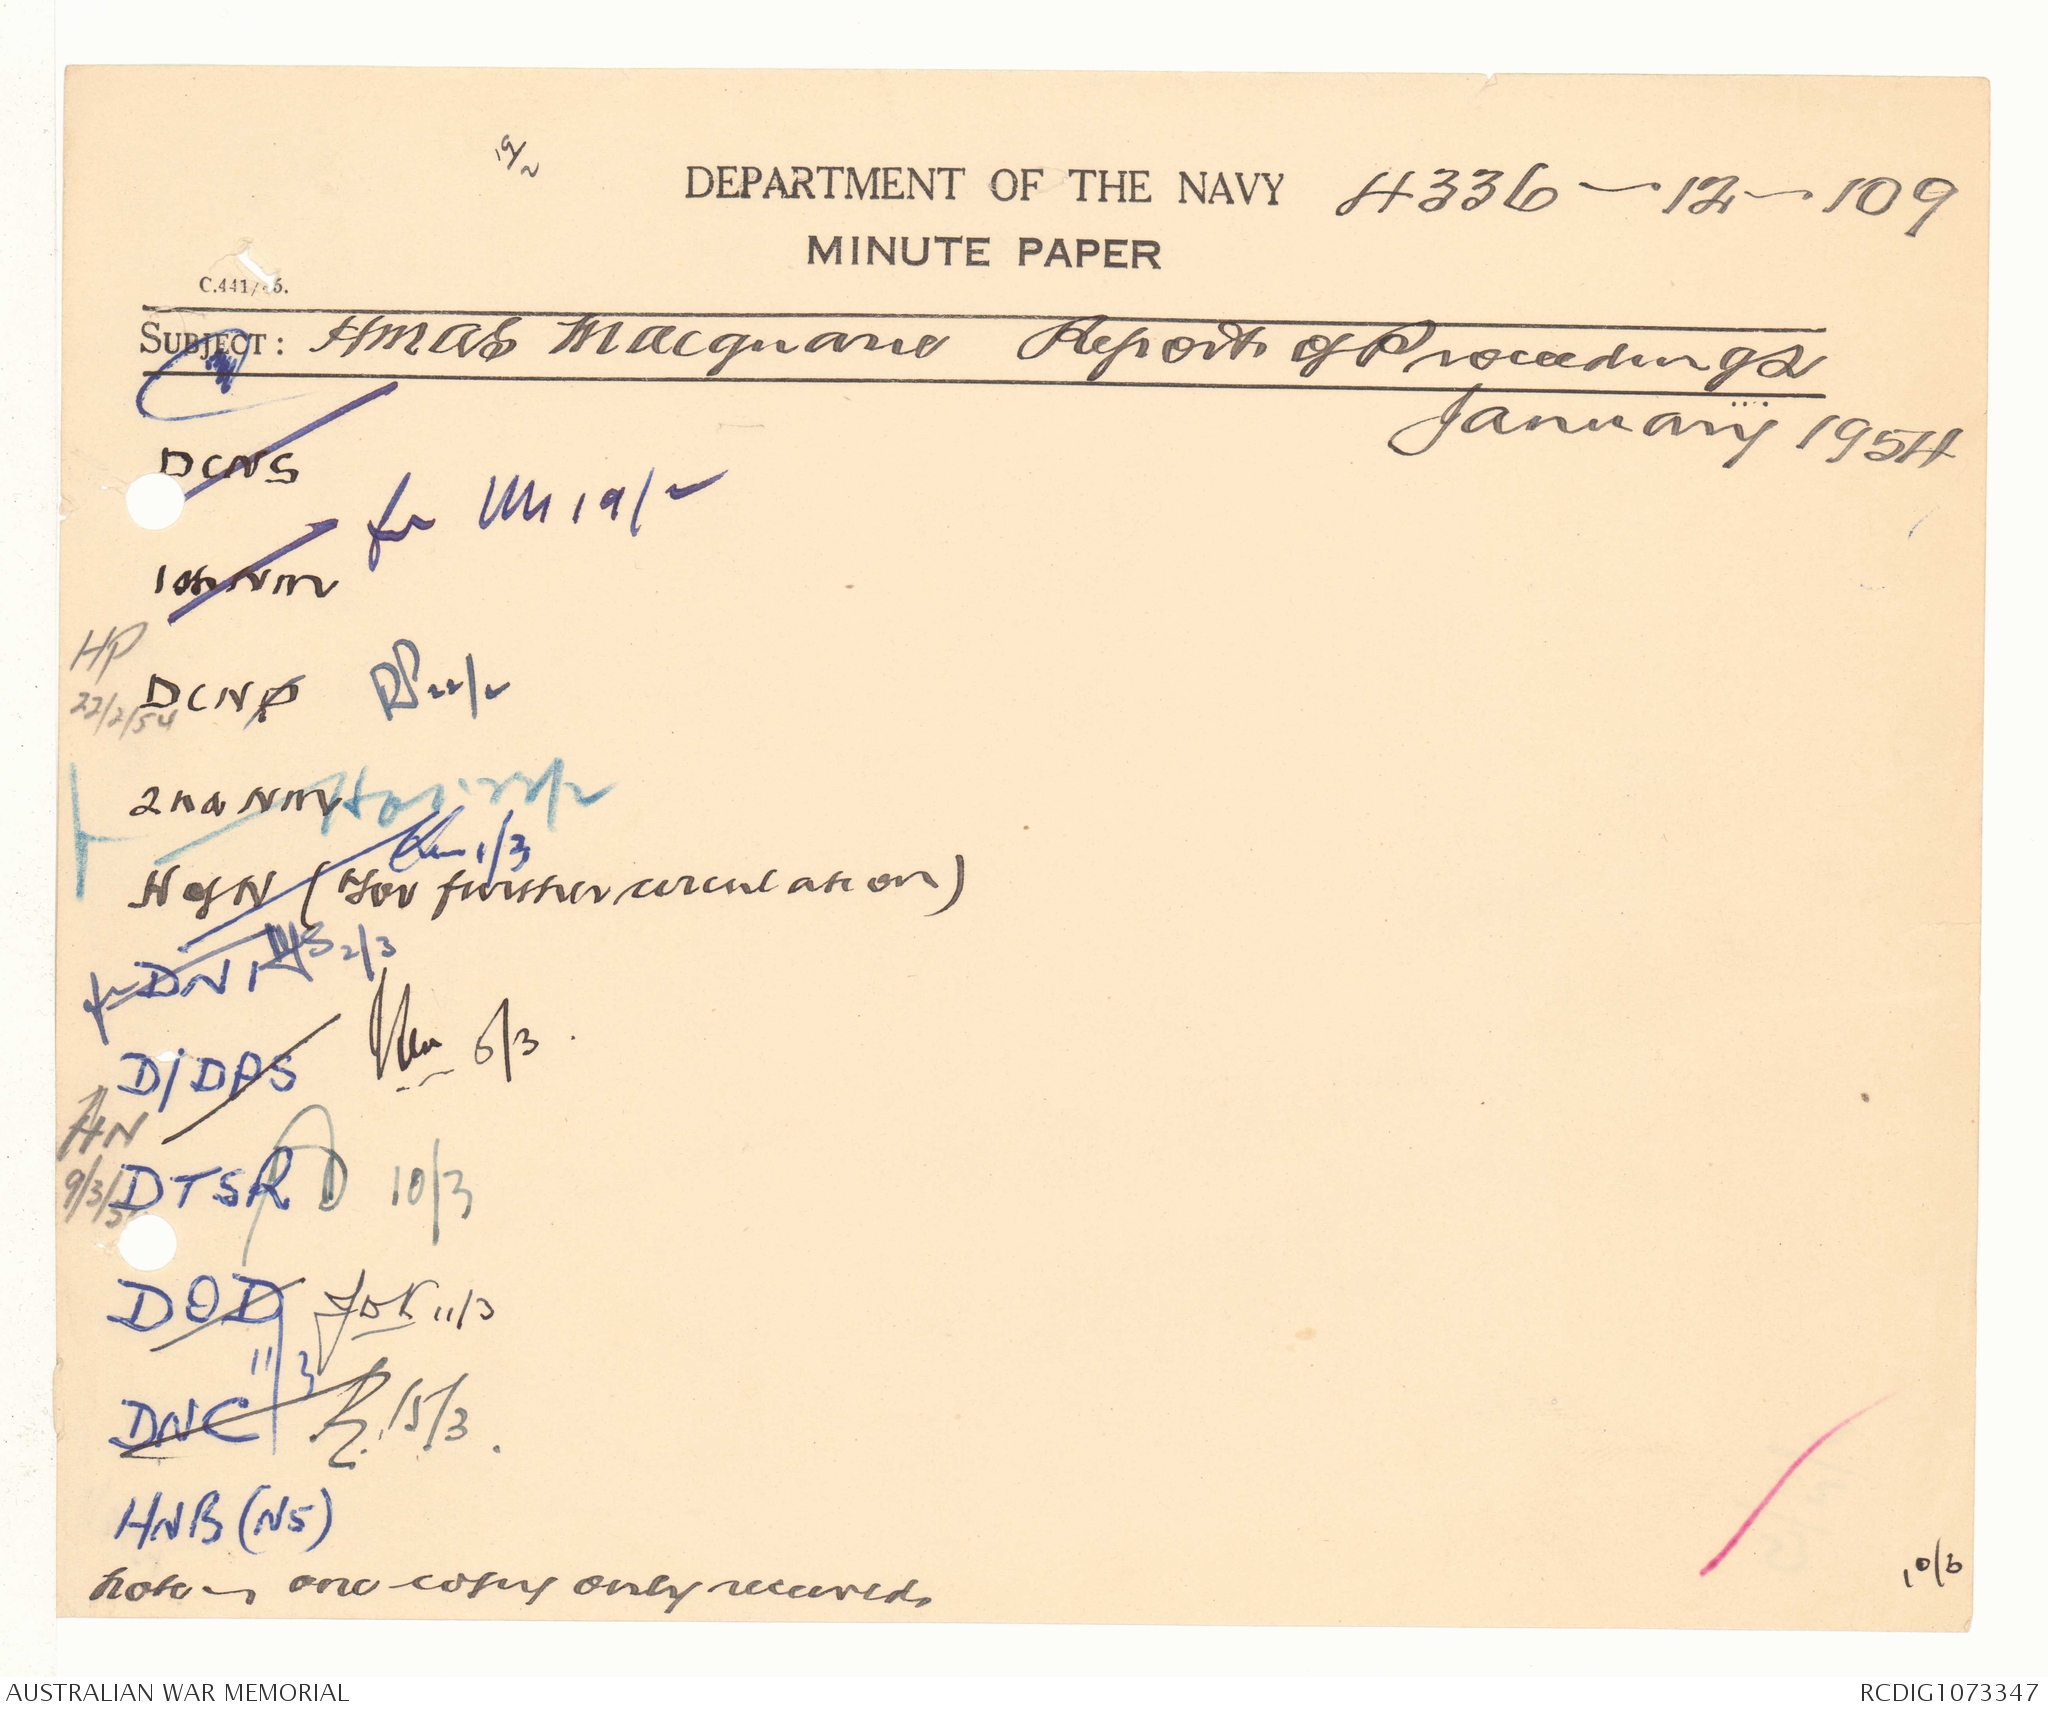 19/2
DEPARTMENT OF THE NAVY 4336-12-109
MINUTE PAPER
C.441/
SUBJECT: HMAS Macquarie Report of Proceedings
January 1954
DCNS
for 19/2
1st NM
HP
22/2/54
DCNP 22/2
2nd NM 22/2
1/3
H of N (for further circulation)
for DNI 2/3
D/DPS 6/3
AN
9/3/5
DTSR 10/3
DOD 11/3
11/3
DNC 15/3
HNB (N5)
Note - one copy only received.
10/3
AUSTRALIAN WAR MEMORIAL RCDIG1073347